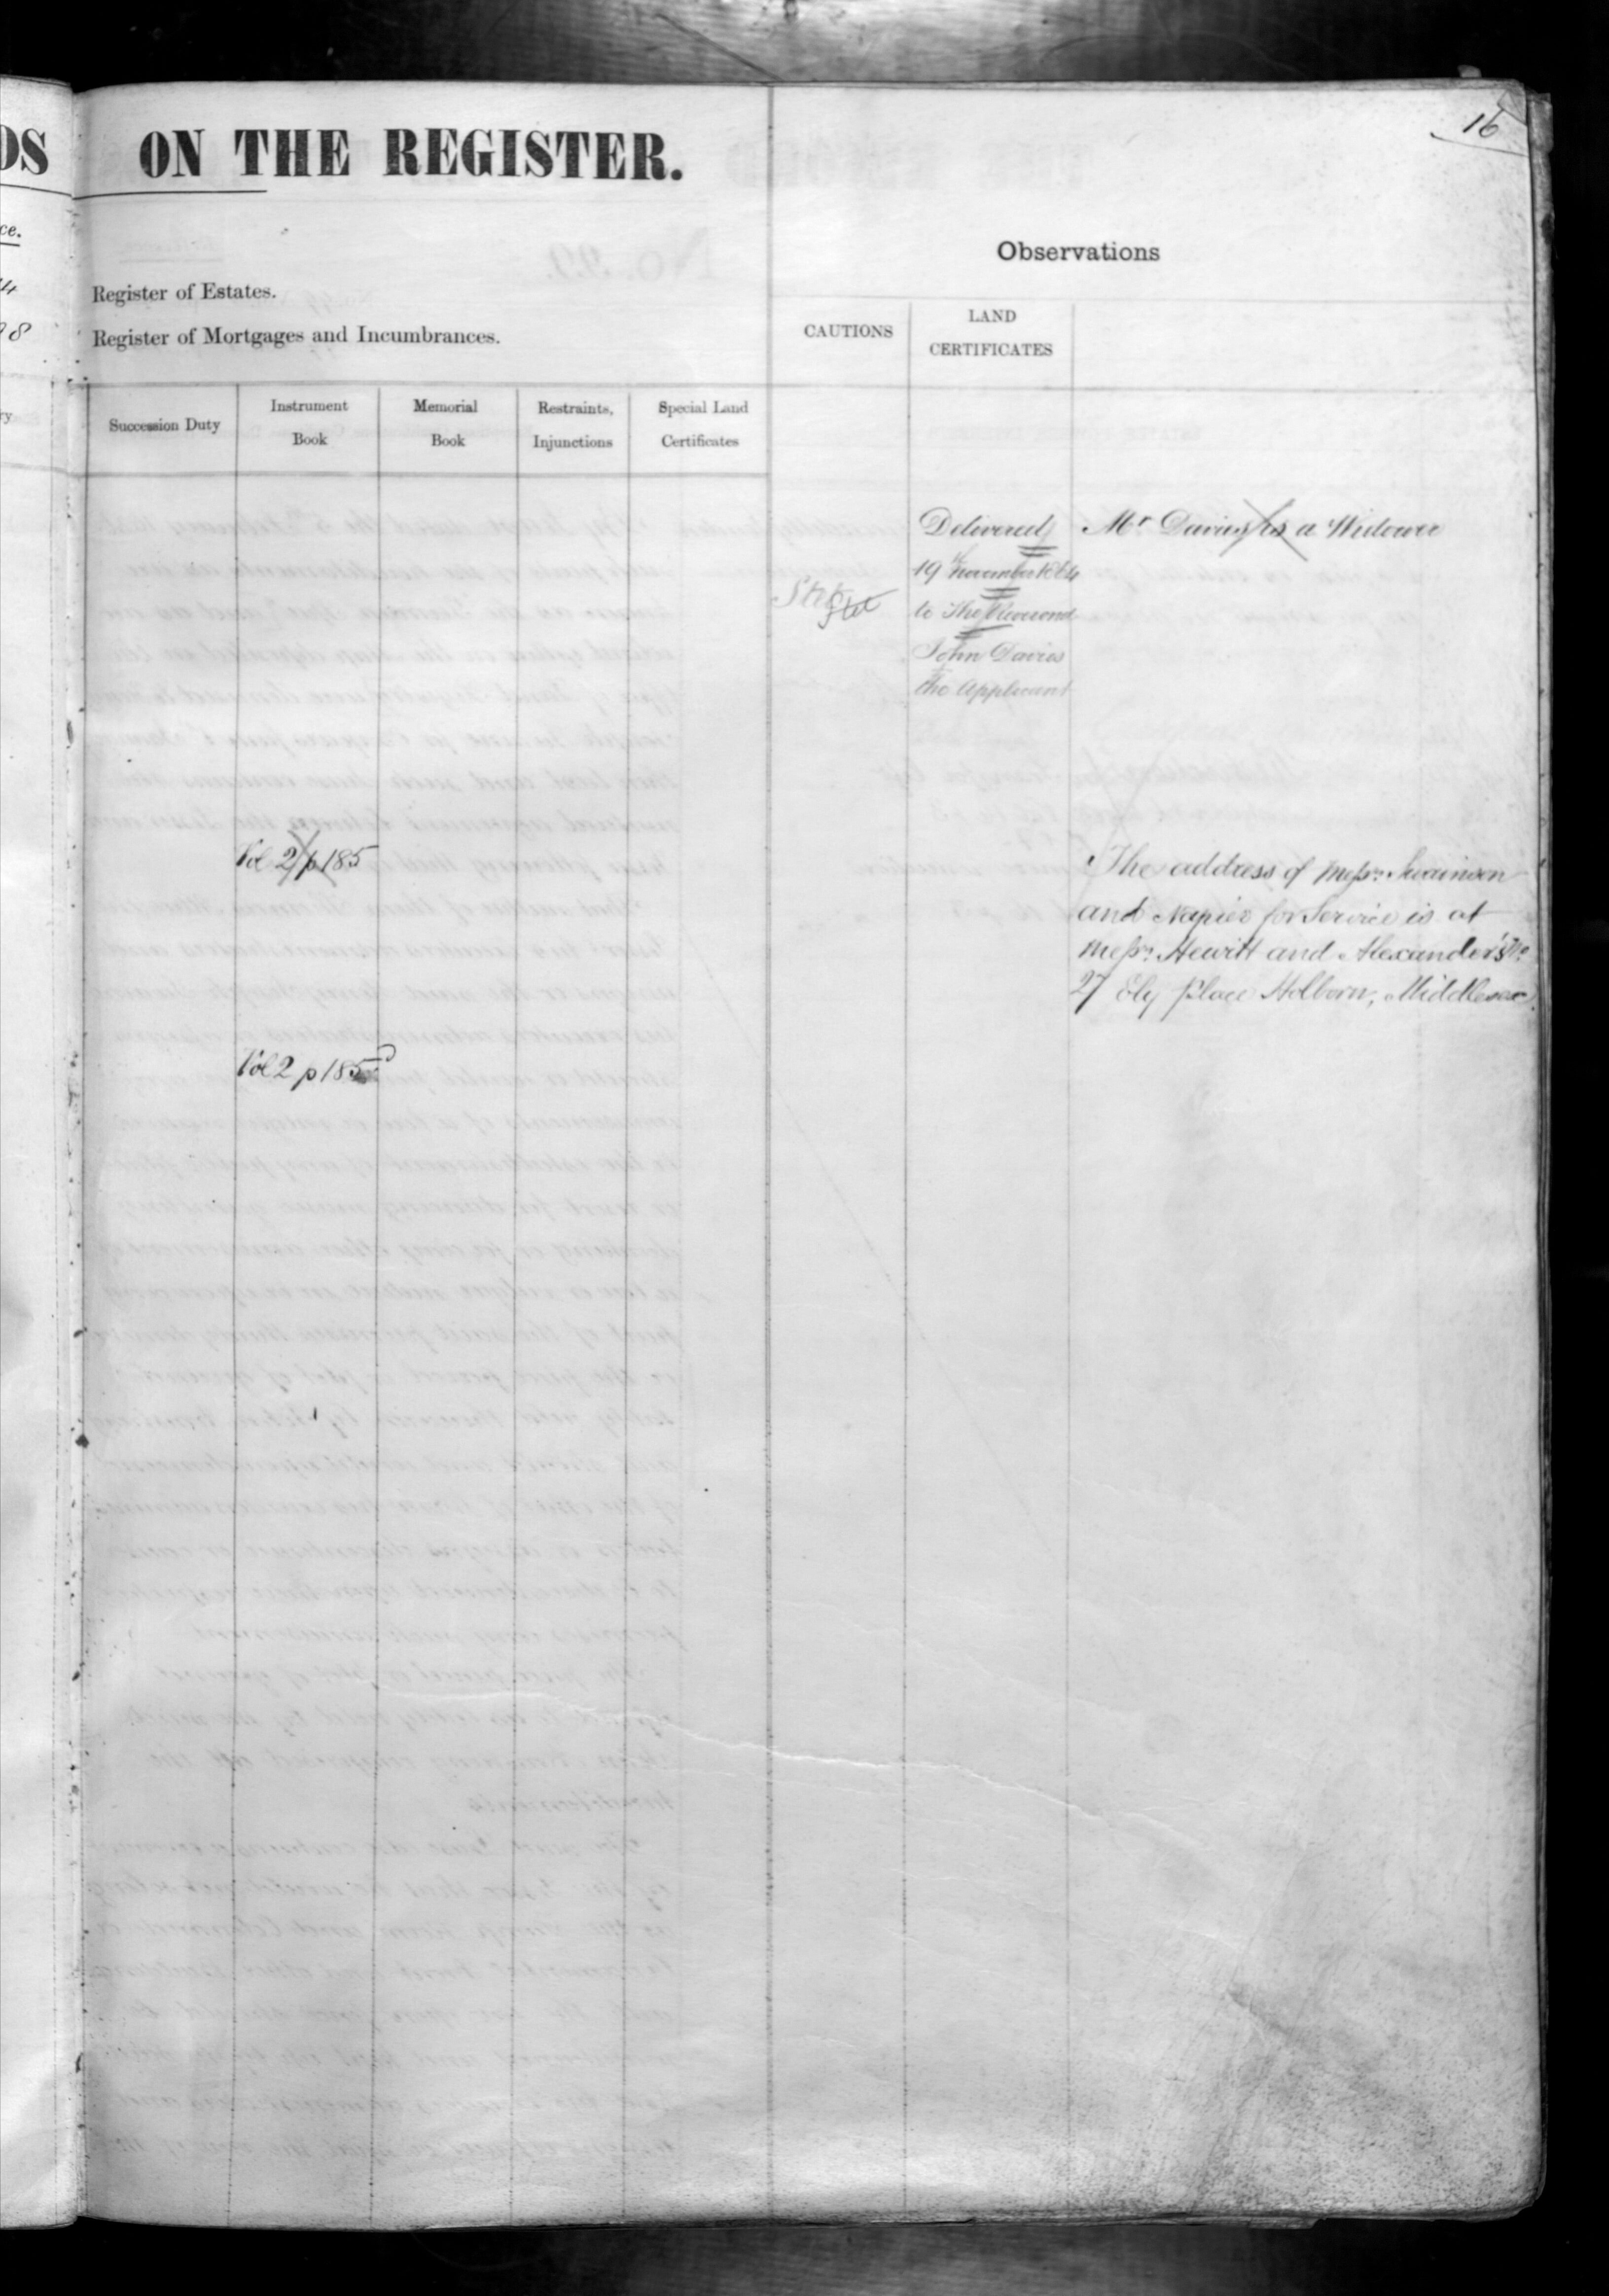 16
DS ON THE REGISTER.
ce.
Observations
Register of Estates.
8
Register of Mortgages and Incumbrances.
CAUTIONS
LAND
CERTIFICATES
Succession Duty
Instrument
Book
Memorial
Book
Restraints,
Injunctions
Special Land
Certificates
ry
Delivered
19th November 1864
to The Reverend
John Davies
the Applicant
Stet
Mr Davies is a Widower
Vol 2 p 185
The address of Messrs. Swainson
and Napier for Service is at
Messrs. Hewitt and Alexander's No
27 Ely place Holborn, Middlesex
Vol 2 p 185